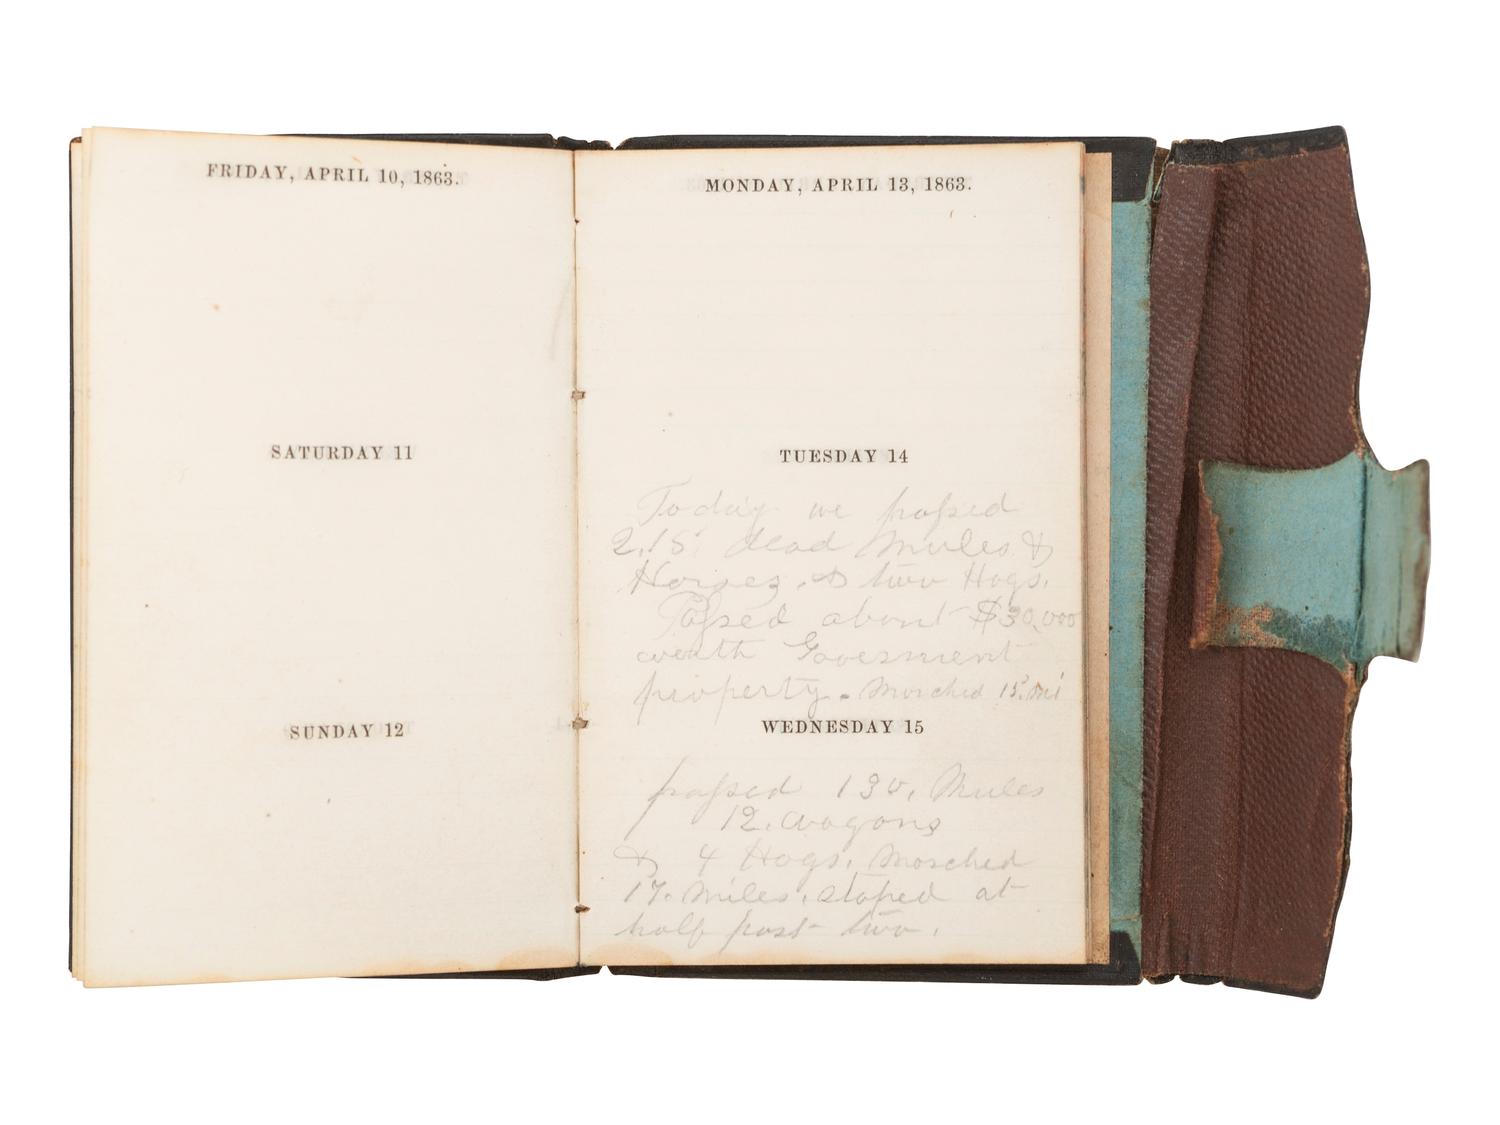 FRIDAY, APRIL 10, 1863.
SATURDAY 11
SUNDAY 12
MONDAY, APRIL 13, 1863.
TUESDAY 14
Today we passed
2,15. dead Mules &
Horses. & two Hogs.
Passed about $30,000
worth Goverment
property. Marched 15. mi
WEDNESDAY 15
passed 130, Mules
12. Wagons
& 4 Hogs. Marched
17. Miles. stoped at
half past two.